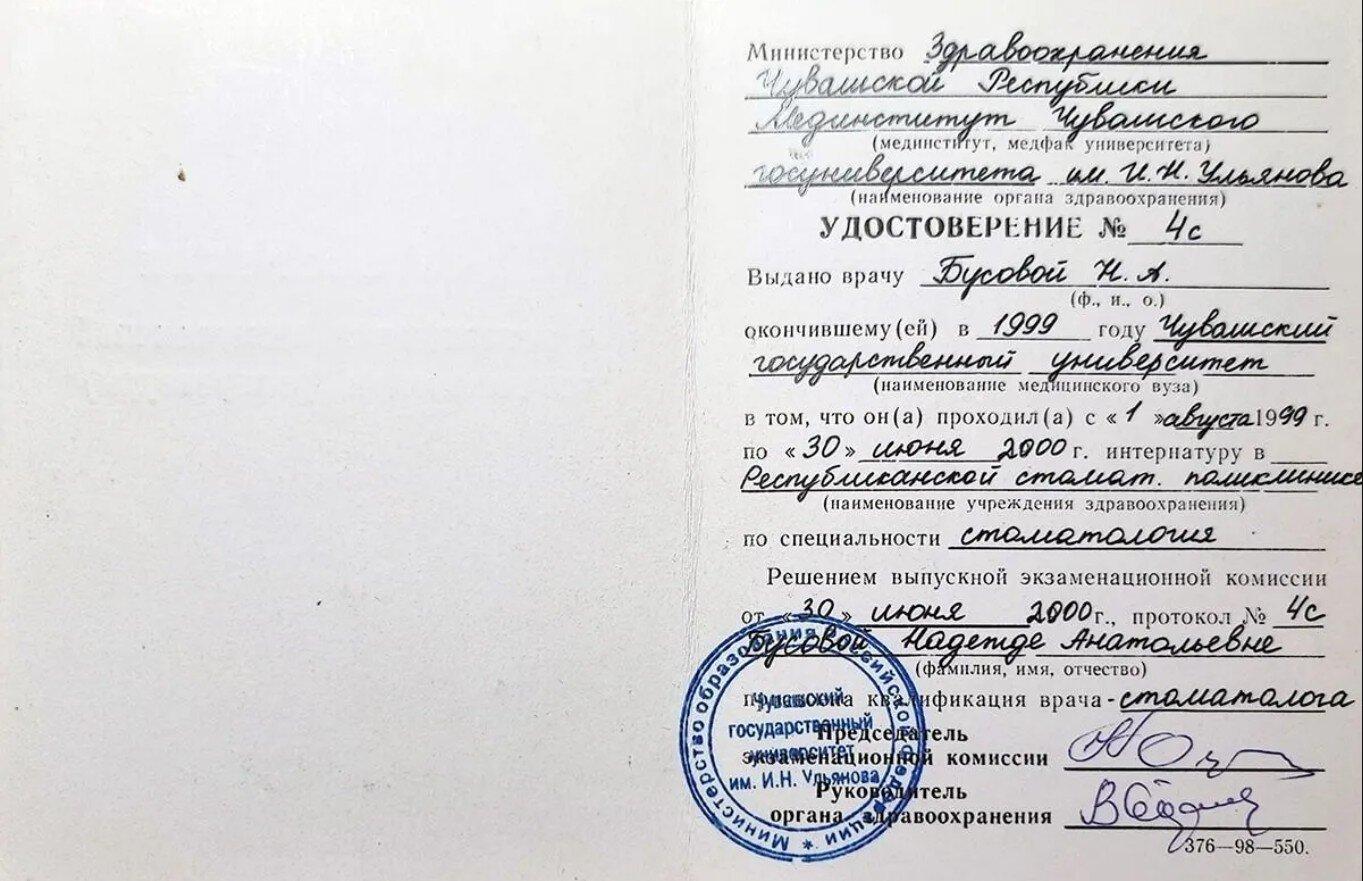 Министерство Здравоохранения
Чувашской Республики
Мединститут Чувашского
(мединститут, медфак университета)
госуниверситета им. И.Н. Ульянова
(наименование органа здравоохранения)
УДОСТОВЕРЕНИЕ № 4с
Выдано врачу Бусовой Н. А.
(ф., и., о.)
окончившему(ей) в 1999 году Чувашский
государственный университет
(наименование медицинского вуза)
в том, что он(а) проходил(а) с «1» августа 1999 г.
по «30» июня 2000 г. интернатуру в
Республиканской стомат. поликлинике
(наименование учреждения здравоохранения)
по специальности стоматология
Решением выпускной экзаменационной комиссии
от «30» июня 2000 г., протокол № 4с
Бусовой Надежде Анатольевне
(фамилия, имя, отчество)
присвоена квалификация врача-стоматолога
Председатель
экзаменационной комиссии
Руководитель
органа здравоохранения
376—98—550.
Министерство образования Российской Федерации *
Чувашский
государственный
университет
им. И.Н. Ульянова